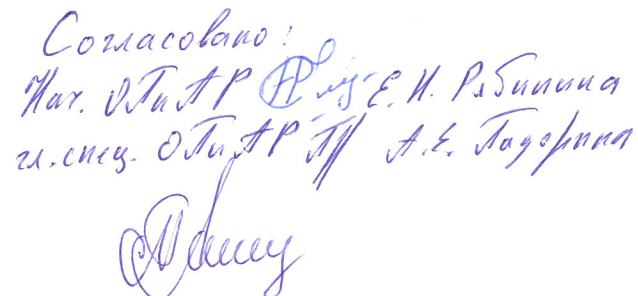 Согласовано:
Нач. ОПиАР Е.Н. Рябинина
гл. спец. ОПиАР А.Е. Падерина